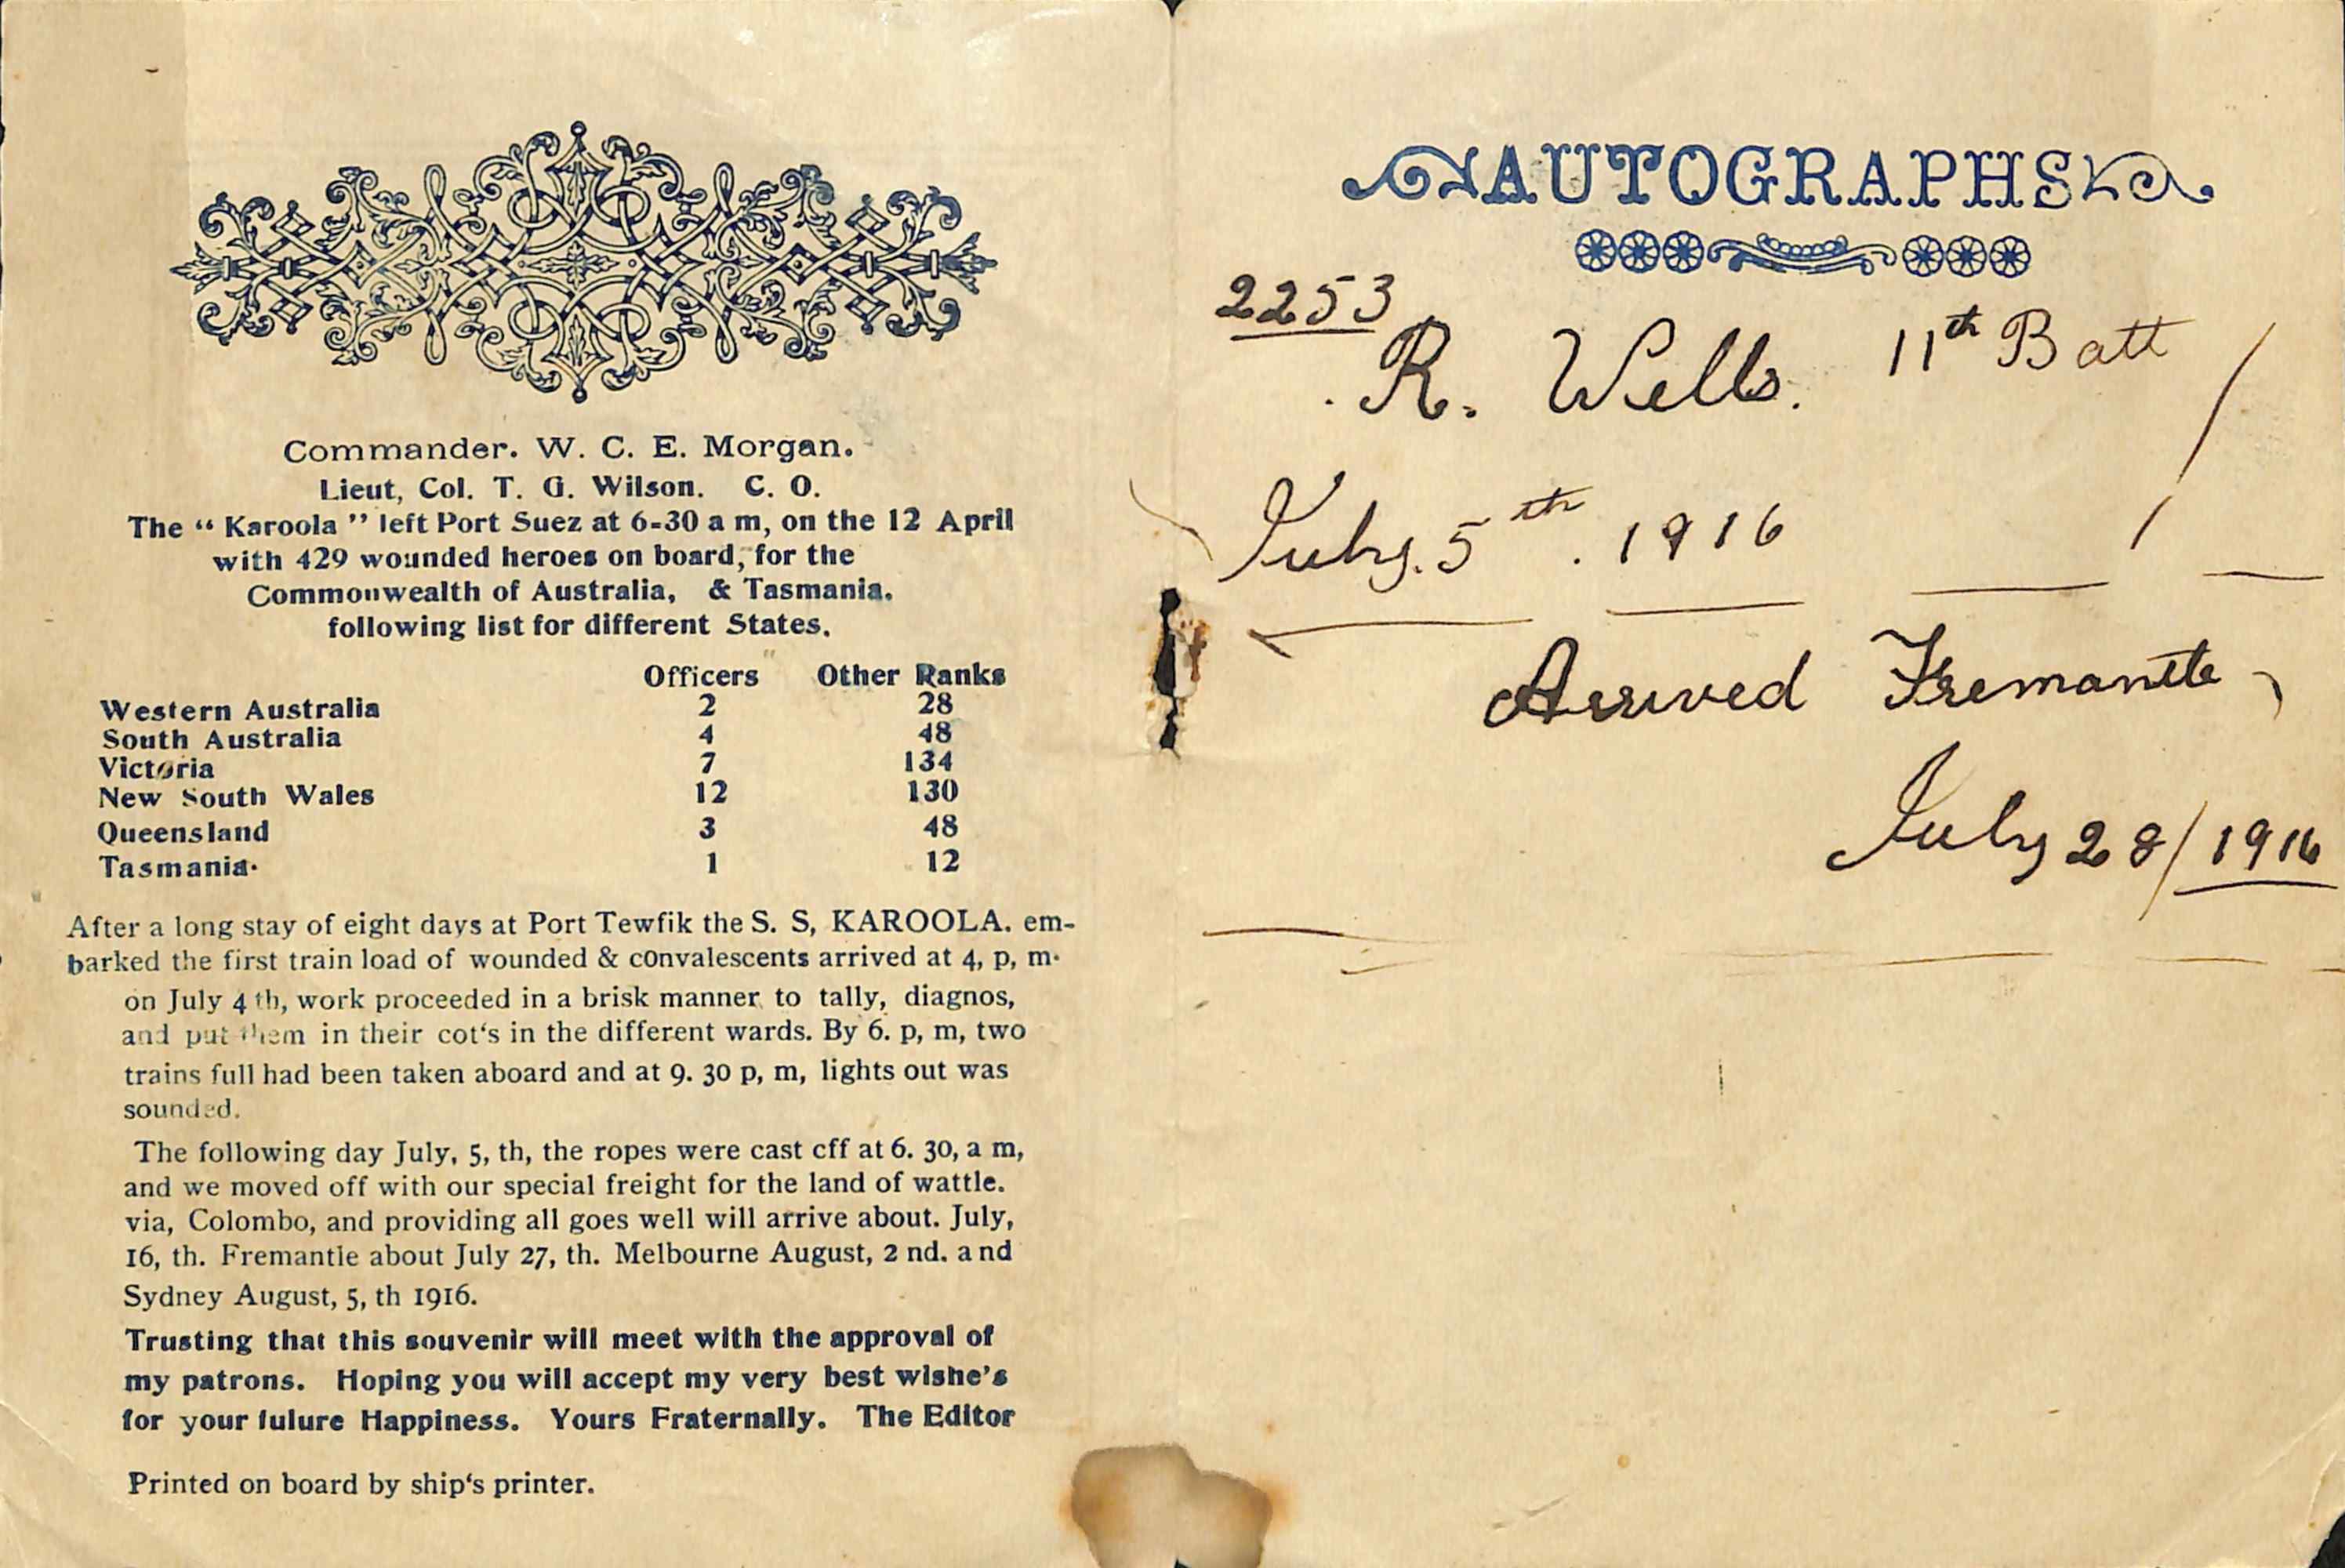 Commander. W. C. E. Morgan.
Lieut, Col. T. G. Wilson. C. O.
The “ Karoola ” left Port Suez at 6-30 a m, on the 12 April
with 429 wounded heroes on board, for the
Commonwealth of Australia, & Tasmania.
following list for different States.
Officers Other Ranks
Western Australia 2 28
South Australia 4 48
Victoria 7 134
New South Wales 12 130
Queensland 3 48
Tasmania. 1 12
After a long stay of eight days at Port Tewfik the S. S, KAROOLA. em-
barked the first train load of wounded & convalescents arrived at 4, p, m.
on July 4 th, work proceeded in a brisk manner to tally, diagnos,
and put them in their cot‘s in the different wards. By 6. p, m, two
trains full had been taken aboard and at 9. 30 p, m, lights out was
sounded.
The following day July, 5, th, the ropes were cast cff at 6. 30, a m,
and we moved off with our special freight for the land of wattle.
via, Colombo, and providing all goes well will arrive about. July,
16, th. Fremantle about July 27, th. Melbourne August, 2 nd. and
Sydney August, 5, th 1916.
Trusting that this souvenir will meet with the approval of
my patrons. Hoping you will accept my very best wishe’s
for your fulure Happiness. Yours Fraternally. The Editor
Printed on board by ship‘s printer.
AUTOGRAPHS
2253
R. Wells. 11th Batt
July. 5th. 1916
Arrived Fremantle
July 28/1916